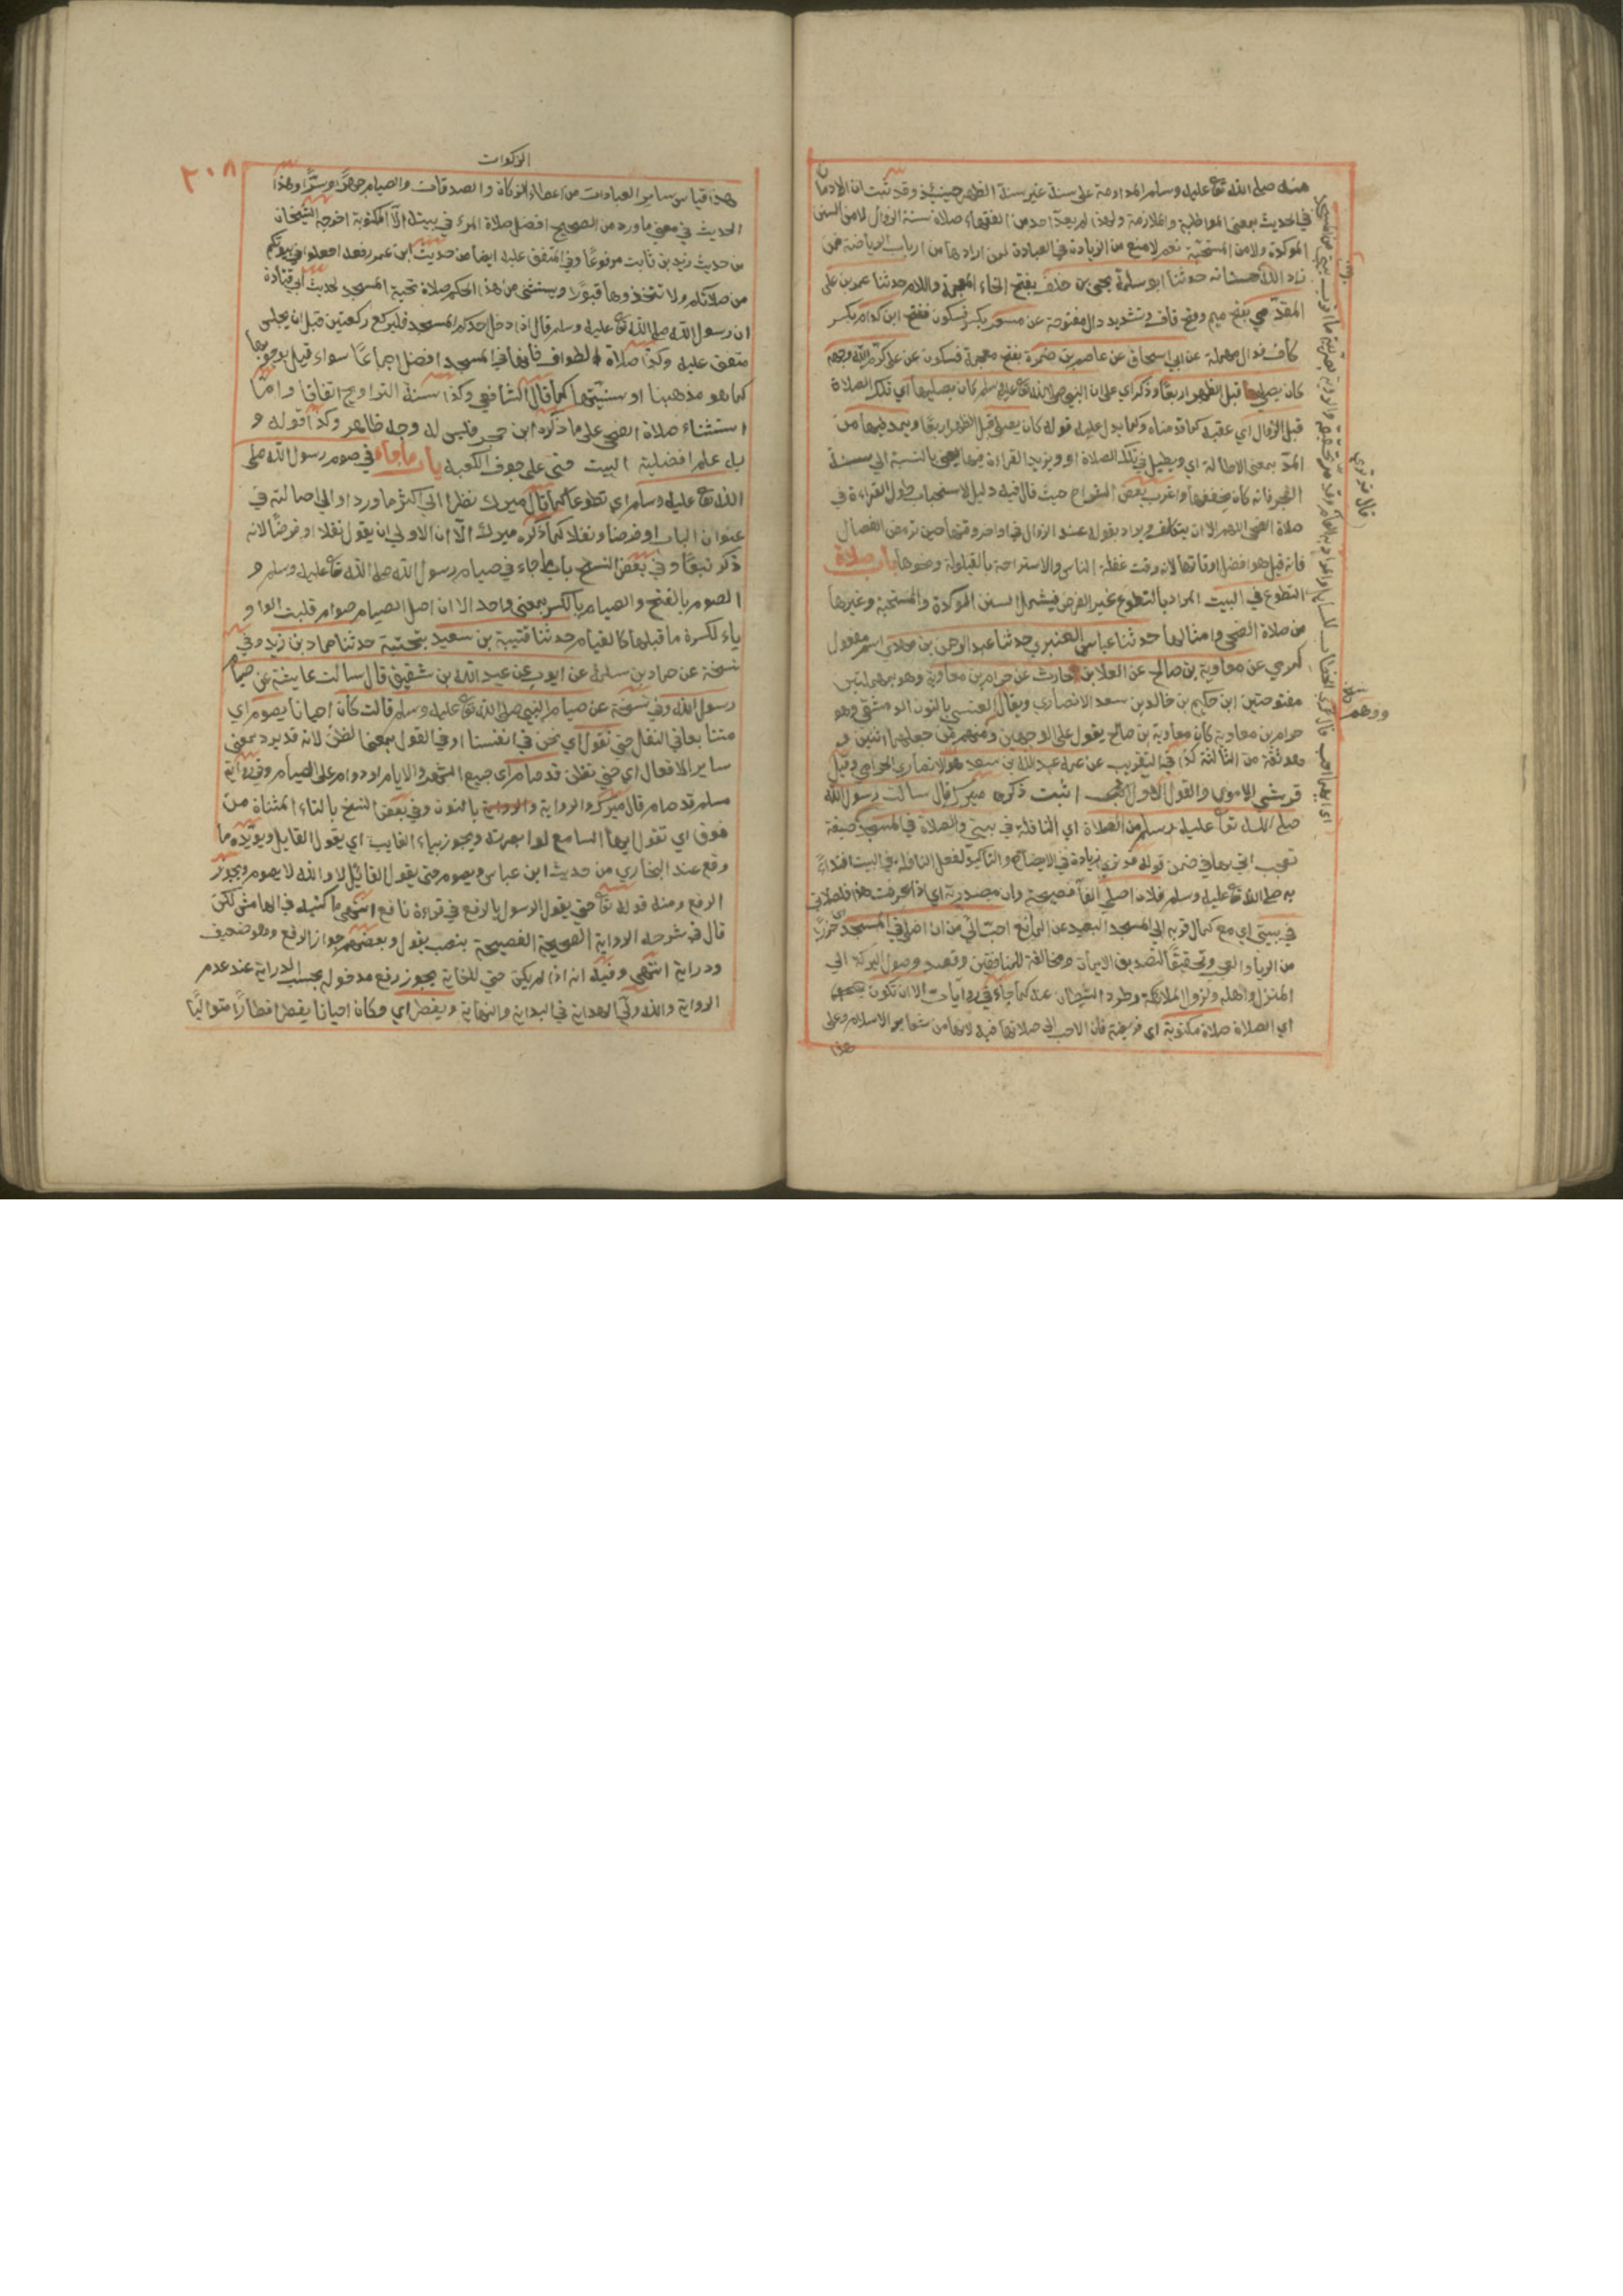 منه صلى الله تعا عليه وسلم المداومة على سنة غير سنة الظهر حينئذ وقد ثبت ان الادمان
في الحديث بمعنى المواظبة والملازمة ولهذا لم يعدّ احد من الفقهاء صلاة سنة الزوال لا من السنن
المؤكدة ولا من المستحبة نعم لا منع من الزيادة في العبادة لمن ارادها من ارباب الرياضة فمن
زاد الله حسناته حدثنا ابو سلمة يحيى بن خلف بفتح الخاء المعجمة واللام حدثنا عمر بن على
المقدّمي بفتح ميم وفتح قاف وتشديد دال مفتوحة عن مسعر بكسر فسكون ففتح ابن كدام بكسر
كاف فدال مهملة عن ابي اسحاق عن عاصم بن ضمرة بفتح معجمة فسكون عن على كرّم الله وجهه
كان يصلي قبل الظهر اربعًا وذكر اي على ان النبي صلى الله تعا عليه وسلم كان يصليها اي تلك الصلاة
قبل الزوال اي عقبه كما قدمناه وكما يدل عليه قوله كان يصلى قبل الظهر اربعًا ويمد فيها من
المدّ بمعنى الاطالة اي ويطيل في تلك الصلاة او ويزيد القراءة فيها يعني بالنسبة الي سنة
الفجر فانه كان يخففها واغرب بعض الشراح حيث قال فيه دليل لاستحباب طول القراءة في
صلاة الضحى اللهم الا ان يتكلف ويراد بقوله عند الزوال في اواخر وقتها حين ترمض الفصال
فانه قيل هو افضل اوقاتها لانه وقت غفلة الناس والاستراحة بالقيلولة ونحوها باب صلاة
التطوع في البيت المراد بالتطوع غير الفرض فيشمل السنن المؤكدة والمستحبة وغيرها
من صلاة الضحى وامثالها حدثنا عباس العنبري حدثنا عبد الرحمن بن مهدي اسم مفعول
كرمي عن معاوية بن صالح عن العلا بن الحارث عن حرام بن معاوية وهو بمهملتين
مفتوحتين ابن حكيم بن خالد بن سعد الانصاري ويقال العنسي بالنون الدمشقي وهو
حرام بن معاوية كان معاوية بن صالح يقول على الوجهين ومنهم من جعلهما اثنين و
هو ثقة من الثالثة كذا في التقريب عن عمه عبد الله بن سعد هو الانصاري الحرامي وقيل
قرشي الاموي والقول الاول اثبت ذكره ميرك قال سالت رسول الله
صلى الله تعا عليه وسلم عن الصلاة اي النافلة في بيتي والصلاة في المسجد صيغة
به صلى الله تعا عليه وسلم فلان اصلي الفا فصيحة وان مصدرية اي اذا عرفت هذا فلصلاتي
في بيتي اي مع كمال قربه الى المسجد البعيد عن المانع احبّ الي من ان اصلي في المسجد حذرًا
من الرياء والعجب وتحقيقًا لتصديق الايمان ومخالفة للمنافقين وقصد وصول البركة الي
المنزل واهله ونزول الملائكة وطرد الشيطان عنه كما جاء في روايات الا ان تكون
اي الصلاة صلاة مكتوبة اي فريضة فان الاحب الي صلاتها فيه لانها من شعاير الاسلام وعلى
هذا
الزكوات
٢٠٨
هذا قياس ساير العبادات من اعطاء الزكاة والصدقات والصيام جهرًا وسرًّا وهذا
الحديث في معنى ما ورد من الصحيح افضل صلاة المرء في بيته الّا المكتوبة اخرجه الشيخان
من حديث زيد بن ثابت مرفوعًا وفي المتفق عليه ايضا من حديث ابن عمر رفعه اجعلوا في بيوتكم
من صلاتكم ولا تتخذوها قبورًا ويستثنى من هذا الحكم صلاة تحية المسجد لحديث ابي قتادة
ان رسول الله صلى الله تعا عليه وسلم قال اذا دخل احدكم المسجد فليركع ركعتين قبل ان يجلس
متفق عليه وكذا صلاة الطواف فانها في المسجد افضل اجماعًا سواء قيل بوجوبها
كما هو مذهبنا او سنيتها كما قال الشافعي وكذا سنة التراويح اتفاقا وامّا
استثناء صلاة الضحى على ما ذكره ابن حجر فليس له وجه ظاهر وكذا قوله و
باب ما جاء في صوم رسول الله صلى
الله تعا عليه وسلم اي تطوعًا كما قال ميرك نظرا الي اكثر ما ورد او الي اصالته في
عنوان الباب او فرضا ونفلا كما ذكره ميرك الّا ان الاولى ان يقول نفلا او فرضًا لانه
ذكر تبعًا وفي بعض النسخ باب ما جاء في صيام رسول الله صلى الله تعا عليه وسلم و
الصوم بالفتح والصيام بالكسر بمعنى واحد الا ان اصل الصيام صوام قلبت الواو
ياء لكسرة ما قبلها كالقيام حدثنا قتيبة بن سعيد حدثنا حماد بن زيد وفي
نسخة عن حماد بن سلمة عن ايوب عن عبد الله بن شقيق قال سالت عايشة عن صيام
رسول الله وفي نسخة عن صيام النبي صلى الله تعا عليه وسلم قالت كان احيانا يصوم اي
متتابعا في النفل حتى نقول اي نحن في انفسنا او في القول بمعنى الظن لانه قد يرد بمعنى
ساير الافعال اي حتى نظن قد صام اي جميع الشهر والايام او دوام على الصيام وفي رواية
مسلم قد صام قال ميرك والرواية بالنون وفي بعض النسخ بالتاء المثناة من
فوق اي تقول ايها السامع لو ابصرته ويجوز بياء الغايب اي يقول القايل ويؤيده ما
وقع عند البخاري من حديث ابن عباس ويصوم حتى يقول القائل لا والله لا يصوم ويجوز
الرفع ومنه قوله تعا حتى يقول الرسول بالرفع في قراءة نافع انتهى ما كتبه في الهامش لكن
قال في شرحه الرواية الصحيحة الفصيحة بنصب يقول وبعضهم جواز الرفع وهو ضعيف
ودراية انتهى وفيه انه اذا لم يكن حتى للغاية يجوز رفع مدخوله بحسب الدراية عند عدم
الرواية والله ولّي الهداية في البداية والنهاية ويفطر اي وكان احيانا يفطر افطارًا متواليًا